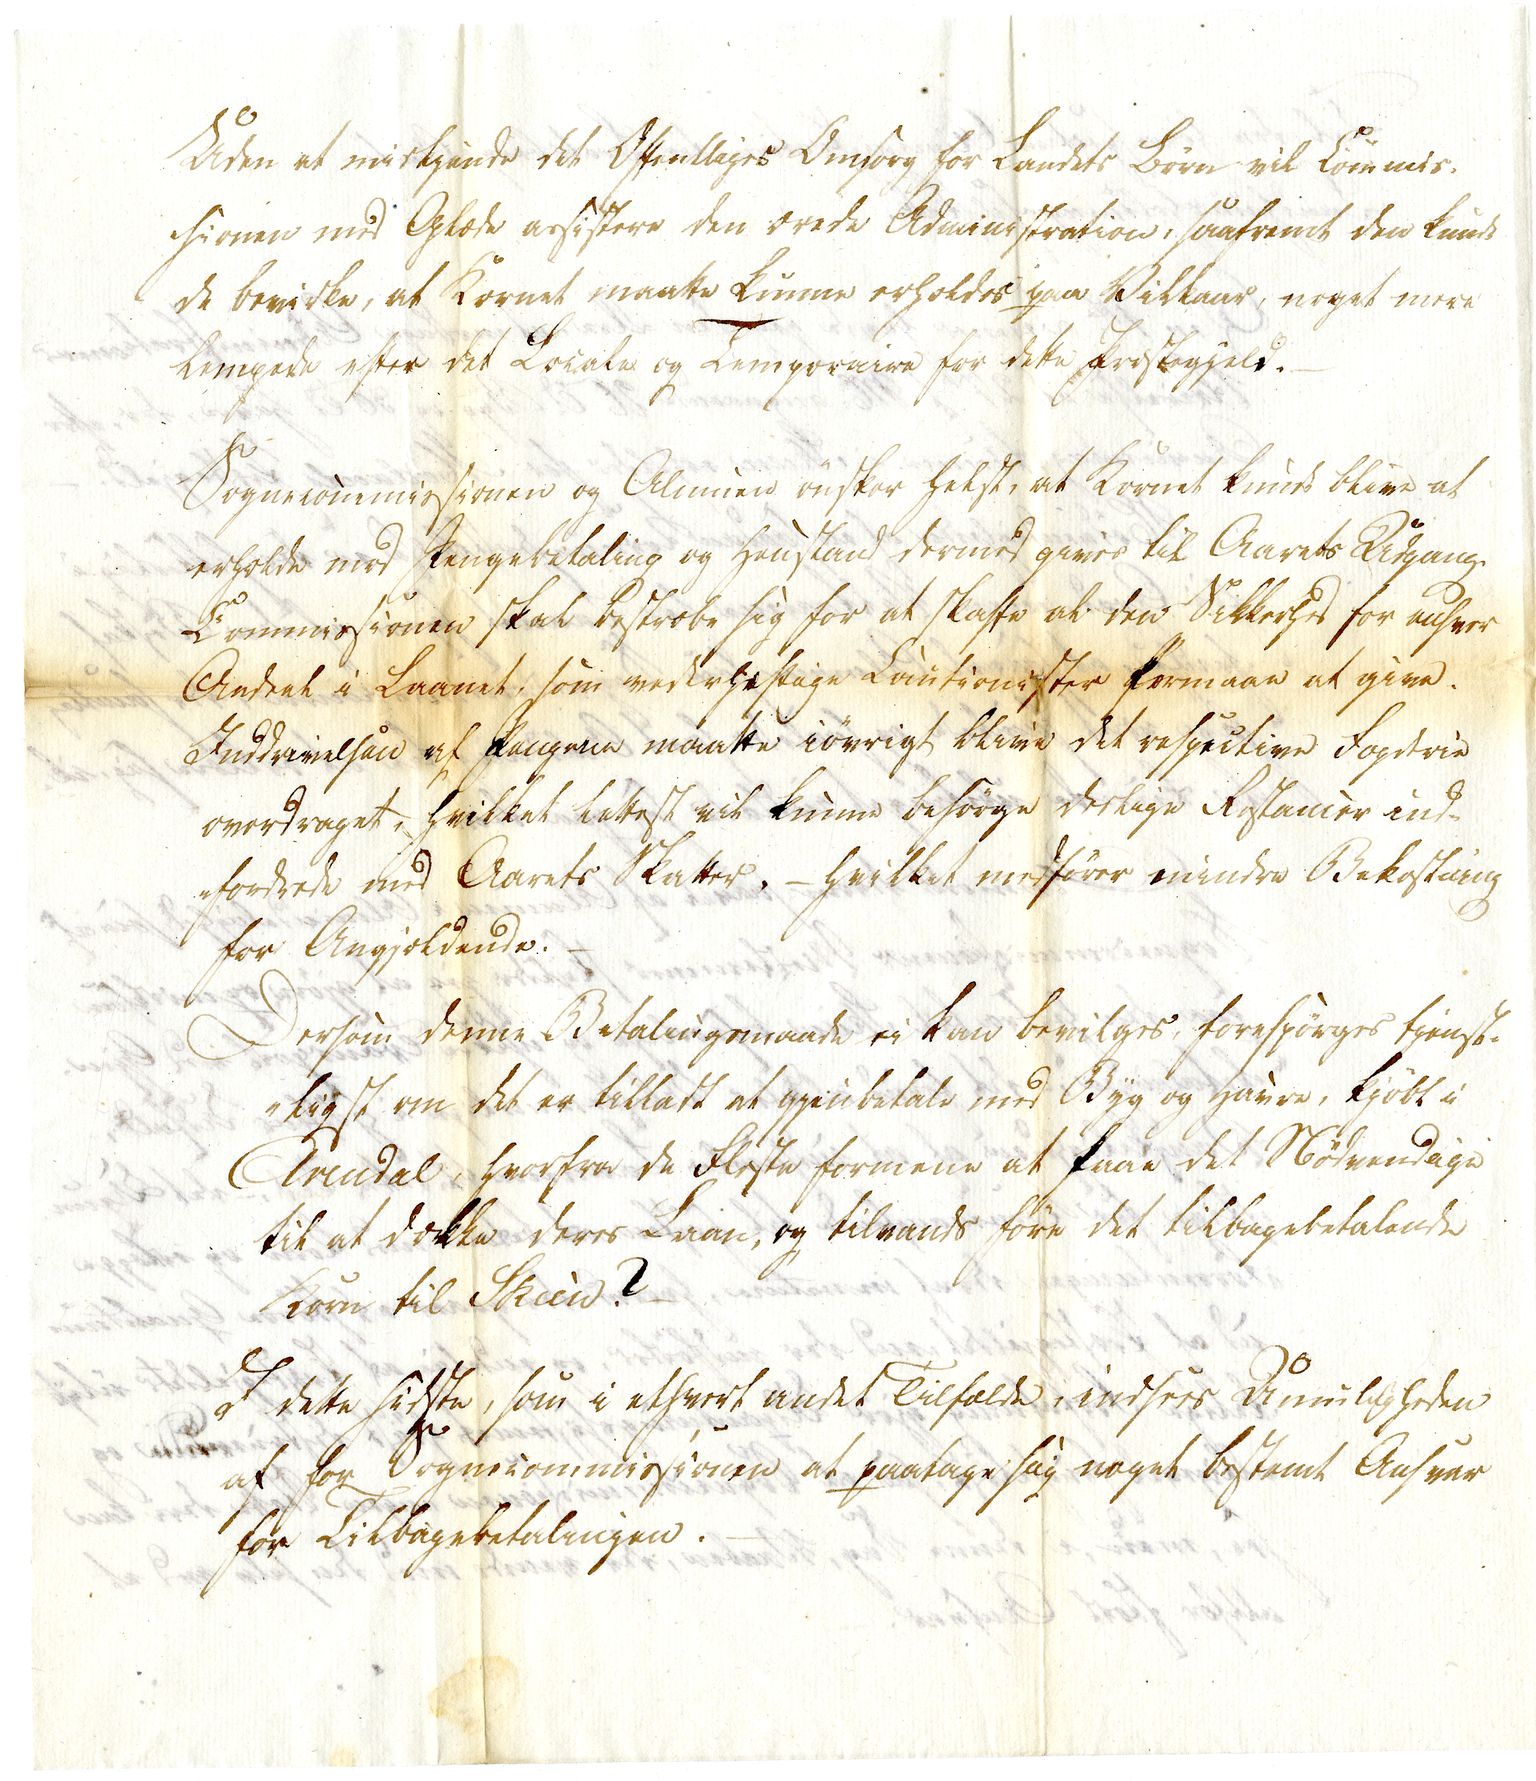 Uden at miskjende det Offentliges Omsorg for Landets Børn vil Commis-
sionen med Glæde assistere den ærede Administration, saafremt den kun-
de bevirke, at Kornet maatte kunne erholdes paa Vilkaar, noget mere
lempede efter det Locale og Temporaire for dette Præstegjeld. –
Sognecommissionen og Almuen önsker helst, at Kornet kunde blive at
erholde mod Pengebetaling og Henstand dermed gives til Aarets Udgang.
Commissionen skal bestræbe sig for at skaffe al den Sikkerhed for enhver
Andeel i Laanet, som vederhæftige Cautionister formaae at give.
Inddrivelsen af Pengene maatte iövrigt blive det respective Fogderie
overdraget, hvilket lettest vil kunne besörge deslige Restancer ind-
fordrede med Aarets Skatter. – hvilket medförer mindre Bekostning
for Angjældende. –
Dersom denne Betalingsmaade ei kan bevilges, forespörges tjenst-
ligst om det er tilladt at gjenbetale med Byg og Havre, kjöbt i
Arendal, hvorfra de Fleste formene at faae det Nödvendige
til at dække deres Laan, og tilvands före det tilbagebetalende
Korn til Skien? –
I dette sidste, som i ethvert andet Tilfælde, indsees Umuligheden
af for Sognecommissionen at paatage sig noget bestemt Ansvar
for Tilbagebetalingen. –